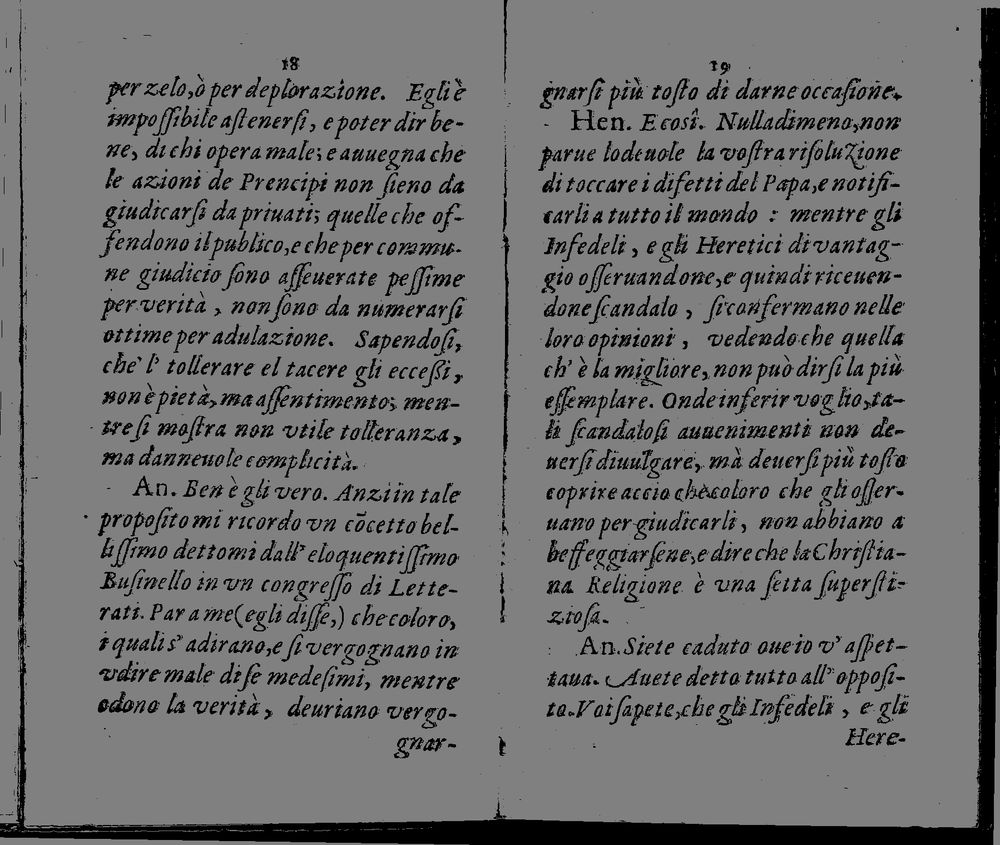 18
per zelo, ò per deplorazione. Egli è
impossibile astenersi, e poter dir be-
ne, di chi opera male; e auuegna che
le azioni de Prencipi non sieno da
giudicarsi da priuati; quelle che of-
fendono il publico, e che per commu-
ne giudicio sono asseuerate pessime
per verità, non sono da numerarsi
ottime per adulazione. Sapendosi,
che l' tollerare el tacere gli eccessi,
non è pietà, ma assentimento; men-
tre si mostra non vtile tolleranza,
ma danneuole complicità.
An. Ben è gli vero. Anzi in tale
proposito mi ricordo vn cõcetto bel-
lissimo dettomi dall' eloquentissimo
Businello in vn congresso di Lette-
rati. Par a me (egli disse,) che coloro,
i quali s' adirano, e si vergognano in
vdire male di se medesimi, mentre
odono la verità, deuriano vergo-
gnar-
19
gnarsi più tosto di darne occasione.
Hen. E così. Nulladimeno, non
parue lodeuole la vostra risoluzione
di toccare i difetti del Papa, e notifi-
carli a tutto il mondo : mentre gli
Infedeli, e gli Heretici di vantag-
gio osseruandone, e quindi riceuen-
done scandalo, si confermano nelle
loro opinioni, vedendo che quella
ch' è la migliore, non può dirsi la più
essemplare. Onde inferir voglio, ta-
li scandalosi auuenimenti non de-
uersi diuulgare, mà deuersi più tosto
coprire accio che coloro che gli osser-
uano per giudicarli, non abbiano a
beffeggiarsene, e dire che la Christia-
na Religione è vna setta supersti-
ziosa.
An. Siete caduto oue io v' aspet-
taua. Auete detto tutto all' opposi-
to. Voi sapete, che gli Infedeli, e gli
Here-